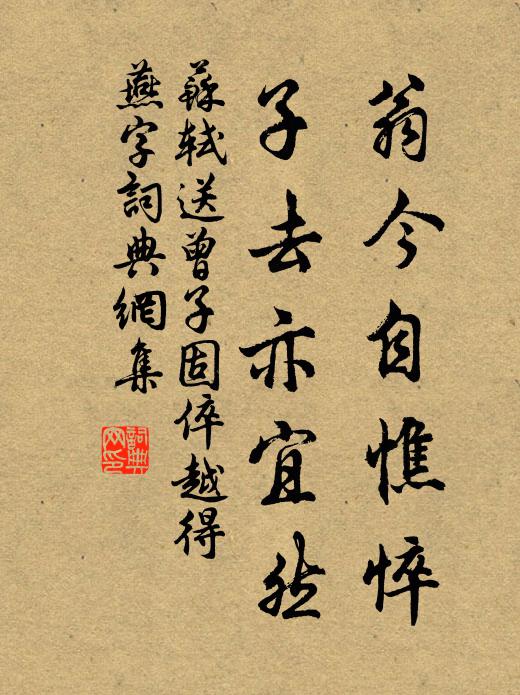 翁今自憔悴
子去亦宜然
蘇軾送曾子固倅越得
燕字詞典網集
詞典
网印